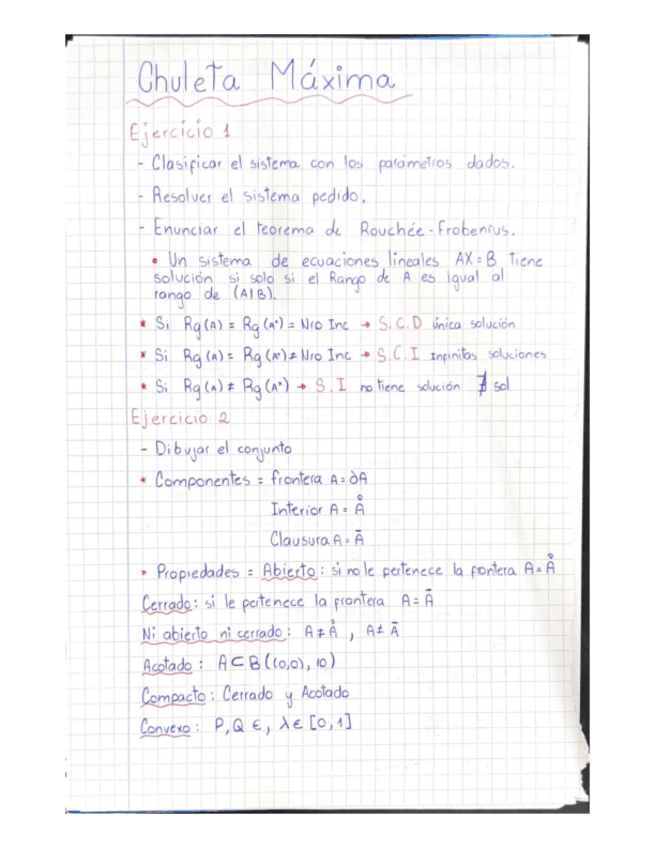 Chuleta Máxima
Ejercicio 1
- Clasificar el sistema con los parámetros dados.
- Resolver el sistema pedido.
- Enunciar el teorema de Rouchée-Frobenius.
• Un sistema de ecuaciones lineales AX=B tiene
solución si solo si el Rango de A es igual al
rango de (A|B).
* Si Rg(A) = Rg(A*) = Nro Inc → S.C.D única solución
* Si Rg(A) = Rg(A*) ≠ Nro Inc → S.C.I Infinitas soluciones
* Si Rg(A) ≠ Rg(A*) → S.I no tiene solución ∄ sol
Ejercicio 2
- Dibujar el conjunto
* Componentes = frontera A = ∂A
Interior A = Å
Clausura A = Ā
* Propiedades = Abierto: si no le pertenece la frontera A = Å
Cerrado: si le pertenece la frontera A = Ā
Ni abierto ni cerrado: A ≠ Å , A ≠ Ā
Acotado: A⊂B((0,0), 10)
Compacto: Cerrado y Acotado
Convexo: P,Q ∈, λ∈[0,1]